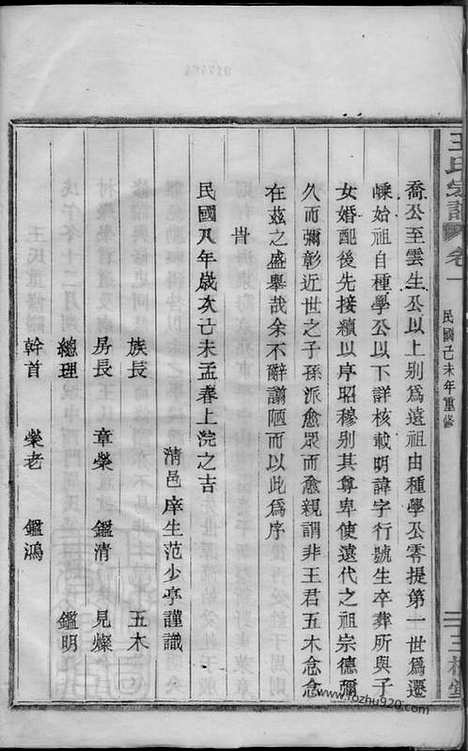 王氏宗譜
卷一
民國己未年重修
三槐堂
喬公至雲生公以上别爲遠祖由種學公零提第一世爲遷
嵊始祖自種學公以下詳核載明諱字行號生卒葬所與子
女婚配後先接續以序昭穆别其尊卑使遠代之祖宗德彌
久而彌彰近世之子孫派愈眾而愈親謂非王君五木念念
在茲之盛舉哉余不辭譾陋而以此爲序
旹
民國八年歲次己未孟春上浣之吉
清邑庠生范少亭謹識
族長 五木
房長 章榮 鑑清 見燦
總理 鑑明
幹首 榮老 鑑鴻
https://www.rotzu920.com